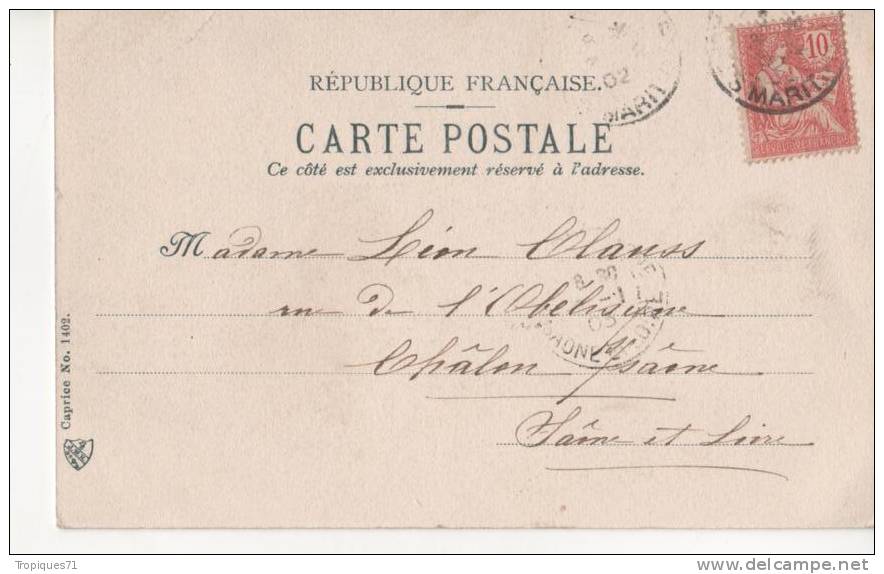 10
02
MARIT
S MARIT
RÉPUBLIQUE FRANÇAISE.
CARTE POSTALE
Ce côté est exclusivement réservé à l'adresse.
Madame Léon Clauss
rue de l'Obélisque
Châlon s/saône
Saône et Loire
Caprice No. 1402.
Tropiques71
delcampe.net